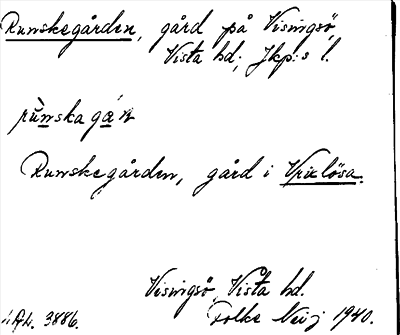 Runskegården, gård på Visingsö,
Vista hd; Jkp:s l.
rùnskagár̄
Runskegården, gård i Vrixlösa.
Visingsö, Vista hd.
Acc. 3886. Folke Meij 1940.